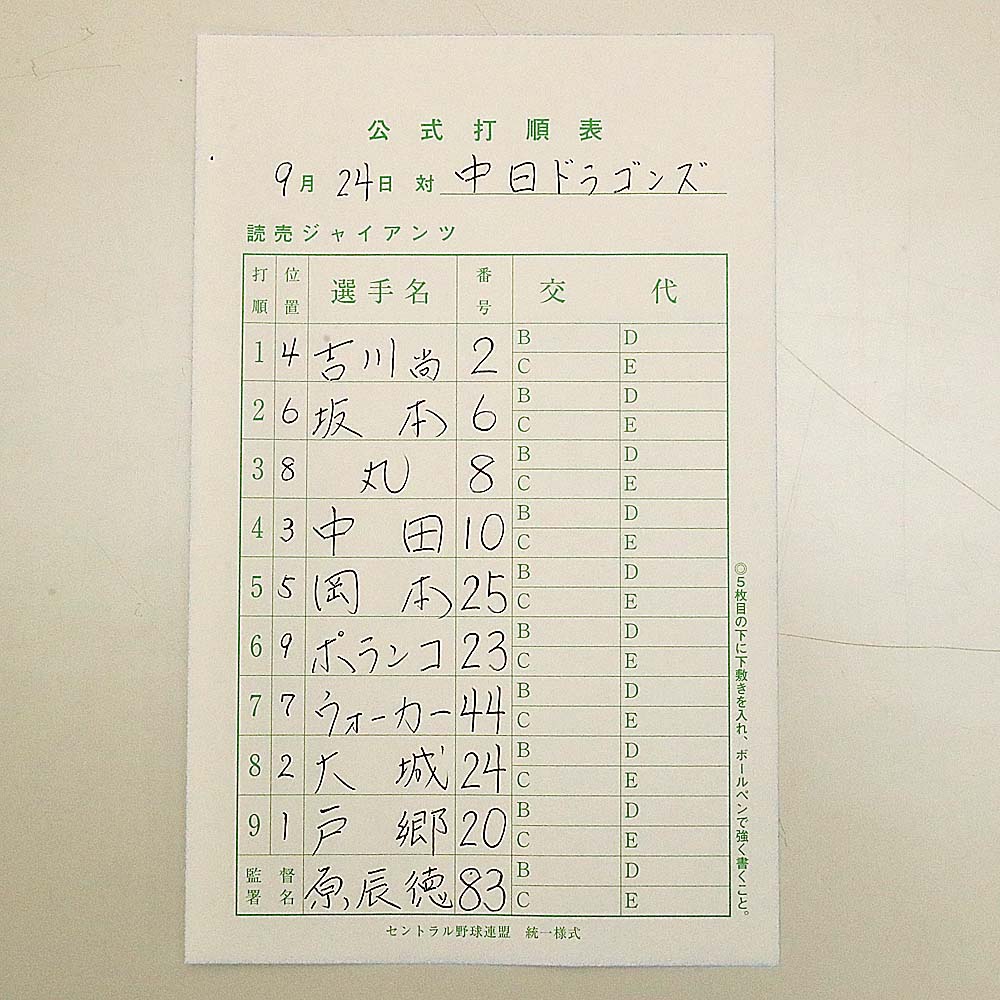 公式打順表
9月24日 対 中日ドラゴンズ
読売ジャイアンツ
打順 位置 選手名 番号 交代
1 4 吉川尚 2 B D C E
2 6 坂本 6 B D C E
3 8 丸 8 B D C E
4 3 中田 10 B D C E
5 5 岡本 25 B D C E
6 9 ポランコ 23 B D C E
7 7 ウォーカー 44 B D C E
8 2 大城 24 B D C E
9 1 戸郷 20 B D C E
監督署名 原辰徳 83 B D C E
◎5枚目の下に下敷きを入れ、ボールペンで強く書くこと。
セントラル野球連盟 統一様式